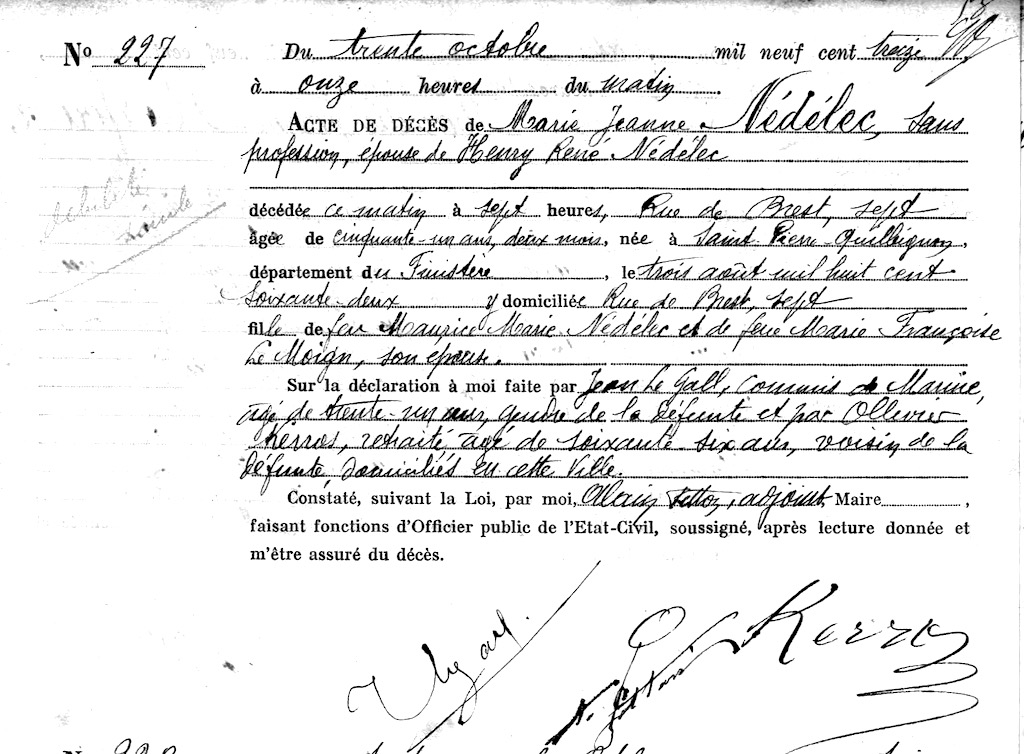 N° 227
Du trente octobre mil neuf cent treize
à onze heures du matin.
ACTE DE DÉCÈS de Marie Jeanne Nédélec, sans
profession, épouse de Henry René Nédélec
décédée ce matin à sept heures, Rue de Brest, sept
âgée de cinquante-un ans, deux mois, née à Saint Pierre-Quilbignon,
département du Finistère, le trois août mil huit cent
soixante-deux y domiciliée Rue de Brest, sept
fille de feu Maurice Marie Nédélec et de feue Marie-Françoise
Le Moign, son épouse.
Sur la déclaration à moi faite par Jean Le Gall, commis de Marine,
âgé de trente-un ans, gendre de la défunte et par Ollivier
Kerros, retraité, âgé de soixante-six ans, voisin de la
défunte, domiciliés en cette Ville.
Constaté, suivant la Loi, par moi, Alain adjoint Maire ,
faisant fonctions d'Officier public de l'Etat-Civil, soussigné, après lecture donnée et
m'être assuré du décès.
O Kerros